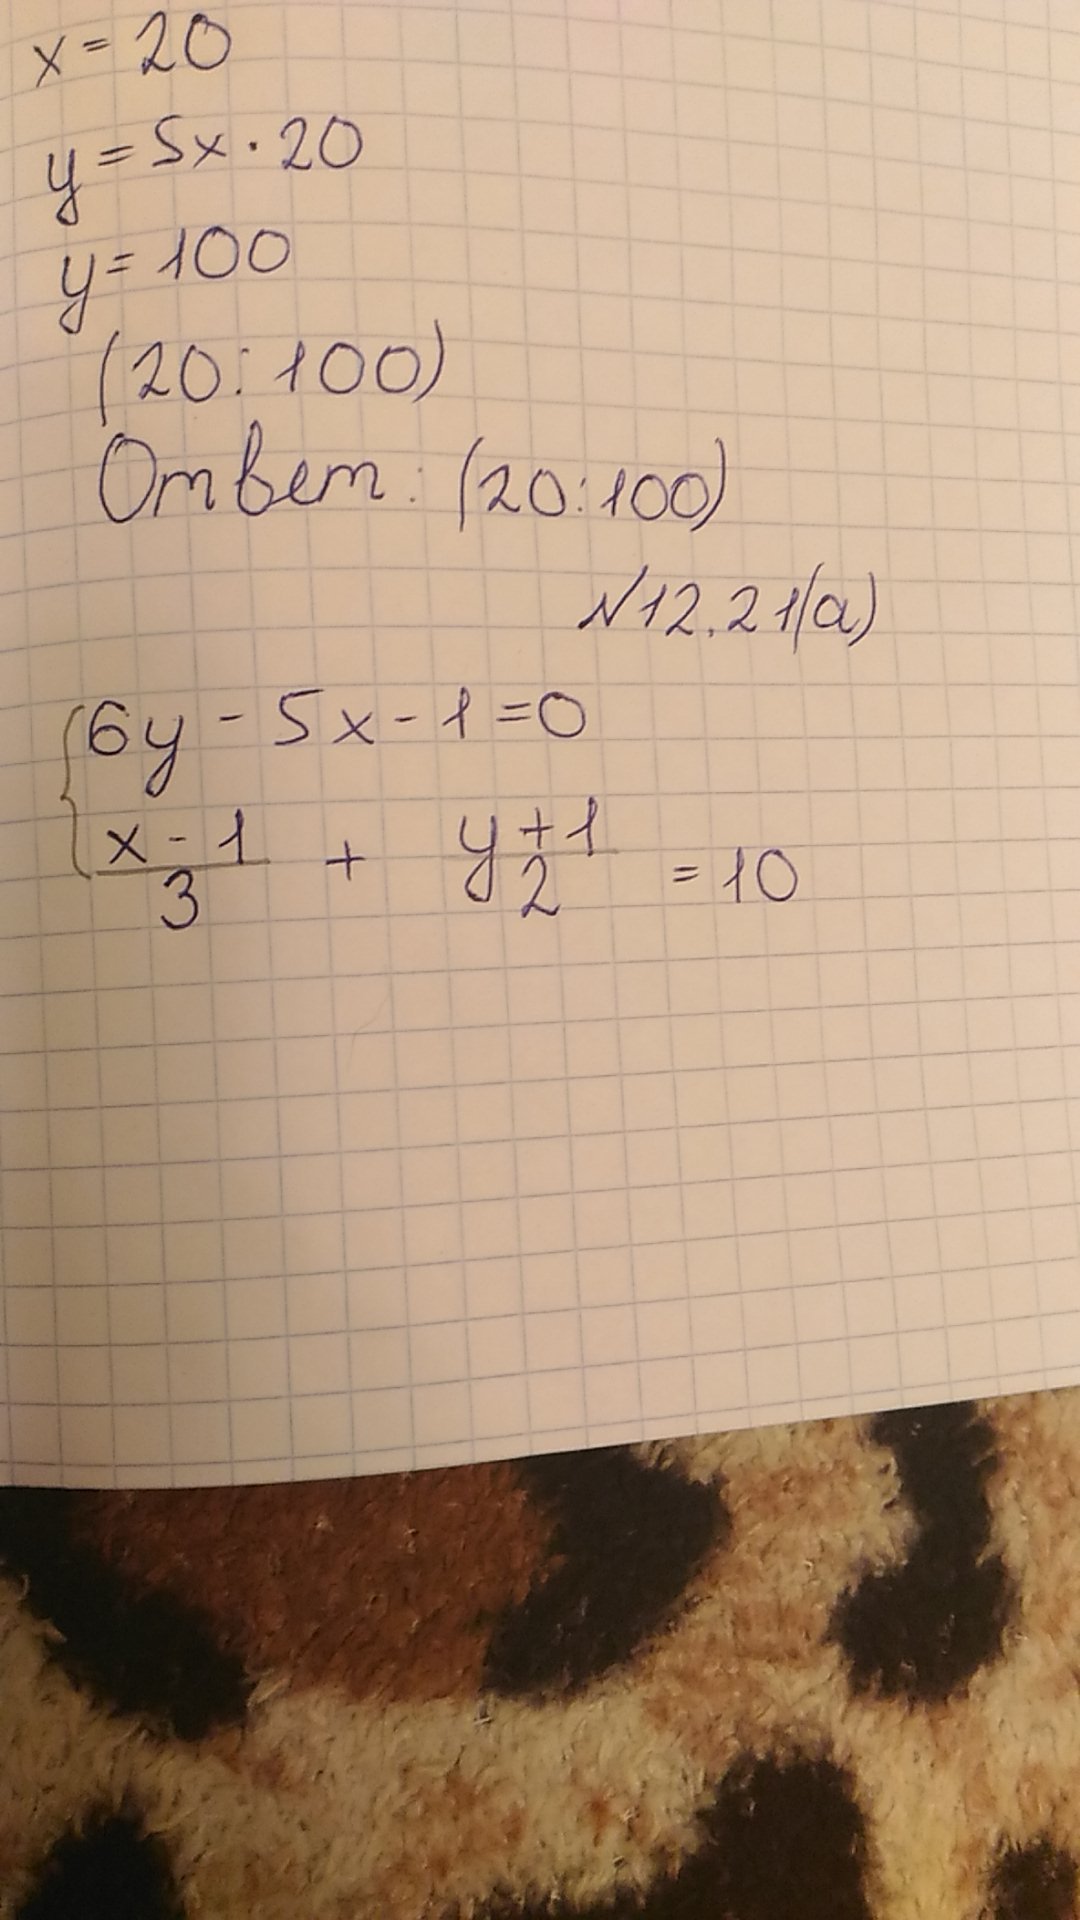 x = 20
y = 5x · 20
y = 100
(20 : 100)
Ответ: (20 : 100)
№12.21(а)
6y - 5x - 1 = 0
x - 1 y + 1
3 + 2 = 10